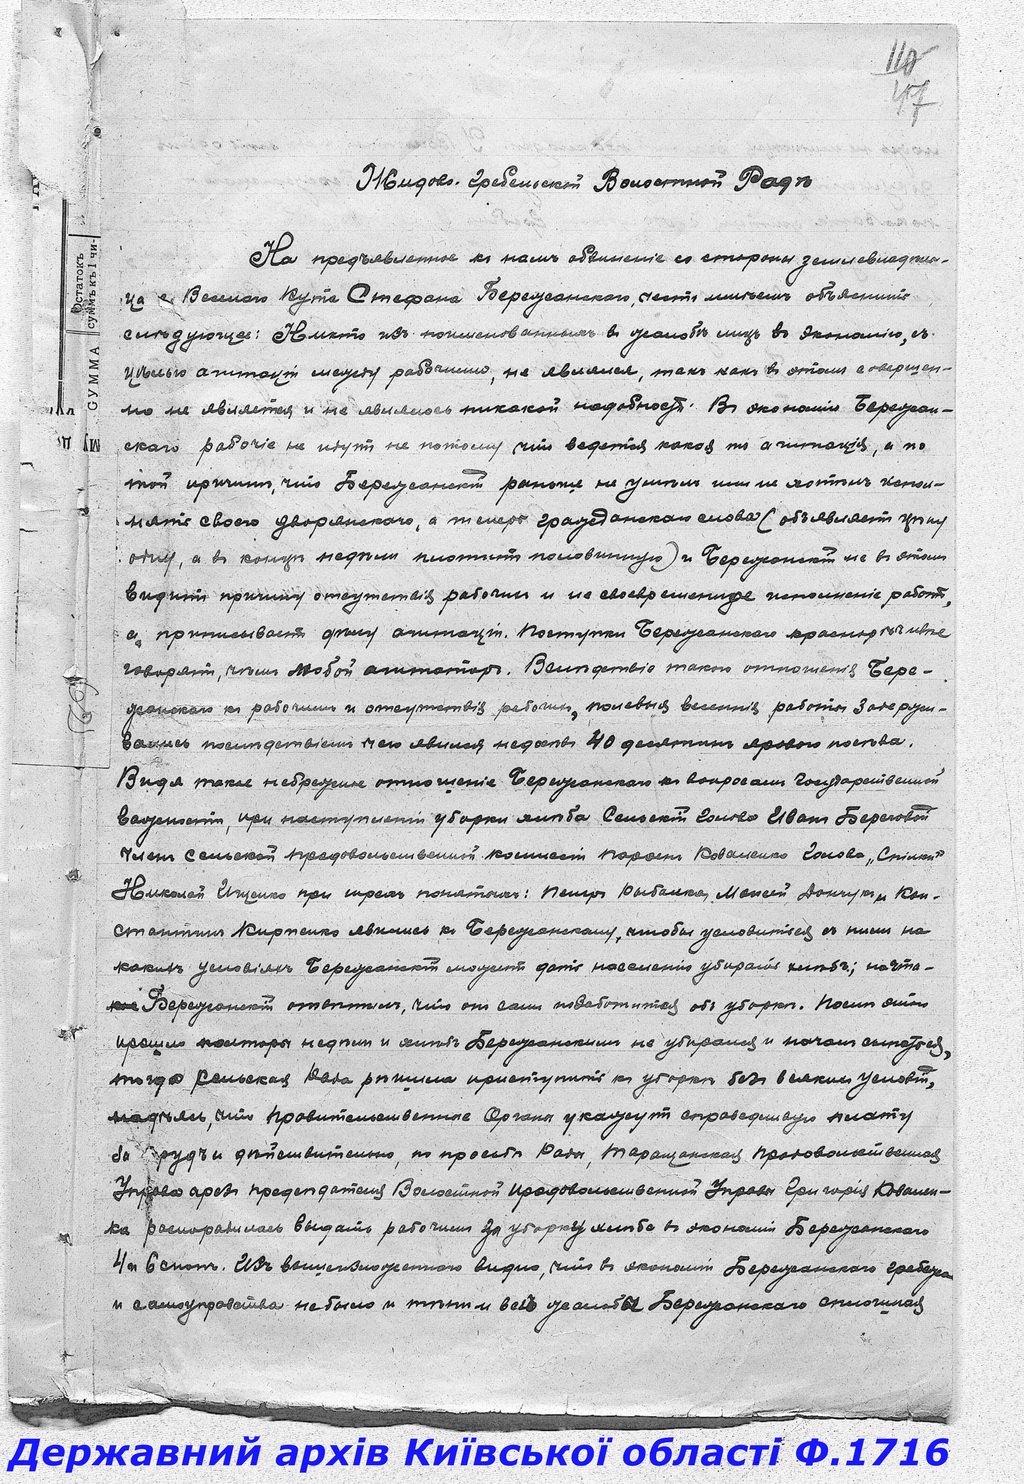 110
47
Остатокъ
суммъ къ 1 чи-
СУММА
Жидово-Гребельской Волостной Радѣ
На предъявленное къ намъ обвиненіе со стороны землевладѣль-
ца с. Веселаго Кута Стефана Бережанскаго, честь имѣемъ объяснить
слѣдующее: Никто изъ поименованныхъ въ жалобѣ лицъ въ экономію, съ
цѣлью агитаціи между рабочими, не являлся, такъ какъ въ этомъ совершен-
но не является и не являлось никакой надобности. Въ экономію Бережан-
скаго рабочіе не идутъ не потому что ведется какая то агитація, а по
той причинѣ, что Бережанскій раньше не умѣлъ или не хотѣлъ испол-
нять своего дворянскаго, а теперь гражданскаго слова (объявляетъ цѣну
одну, а въ концѣ недѣли платитъ половинную) и Бережанскій не въ этомъ
видитъ причину отсутствія рабочихъ и не своевременное исполненіе работъ,
а приписываетъ дѣлу агитаціи. Поступки Бережанскаго краснорѣчивѣе
говорятъ, чѣмъ любой агитаторъ. Вслѣдствіе такого отношенія Бере-
жанскаго къ рабочимъ и отсутствія рабочихъ, полевыя весеннія работы задержи-
вались послѣдствіемъ чего явился недосѣвъ 40 десятинъ ярового посѣва.
Видя такое небрежное отношеніе Бережанскаго къ вопросамъ Государственной
важности, при наступленіи уборки хлѣба Сельскій Голова Иванъ Береговой
членъ сельской продовольственной комиссіи Коваленко Голова „Спілки"
Николай Ищенко при трехъ понятыхъ: Петръ Рыбалка, Моисей Дончукъ и Кон-
стантинъ Кирпенко явились къ Бережанскому, чтобы условиться съ нимъ на
какихъ условіяхъ Бережанскій можетъ дать населенію убирать хлѣбъ; на что-
Бережанскій отвѣтилъ, что онъ самъ позаботится объ уборкѣ. Послѣ этого
прошло полторы недѣли и хлѣбъ Бережанскимъ не убирался и началъ сыпаться,
тогда Сельская Рада рѣшила приступить къ уборкѣ безъ всякихъ условій,
надѣясь, что правительственные Органы укажутъ справедливую плату
за трудъ и дѣйствительно, по просьбѣ Рады, Таращанская Продовольственная
Управа предсѣдателя Волостной Продовольственной Управы Григорія Ковален-
ка распорядилась выдать рабочимъ за уборку хлѣба въ экономіи Бережанскаго
4 и 6 снопъ. Изъ вышеизложеннаго видно, что въ экономіи Бережанскаго грабежа
и самоуправства не было и нѣтъ и вся жалоба Бережанскаго сплошная
Державний архів Київської області Ф.1716